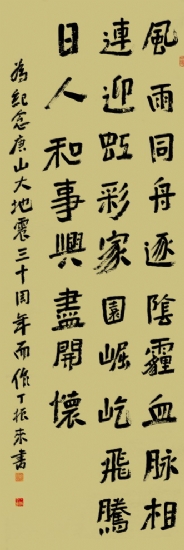 風雨同舟逐陰霾血脉相
連迎虹彩家園崛屹飛騰
日人和事興盡開懷
為紀念唐山大地震三十周年而作丁振來書